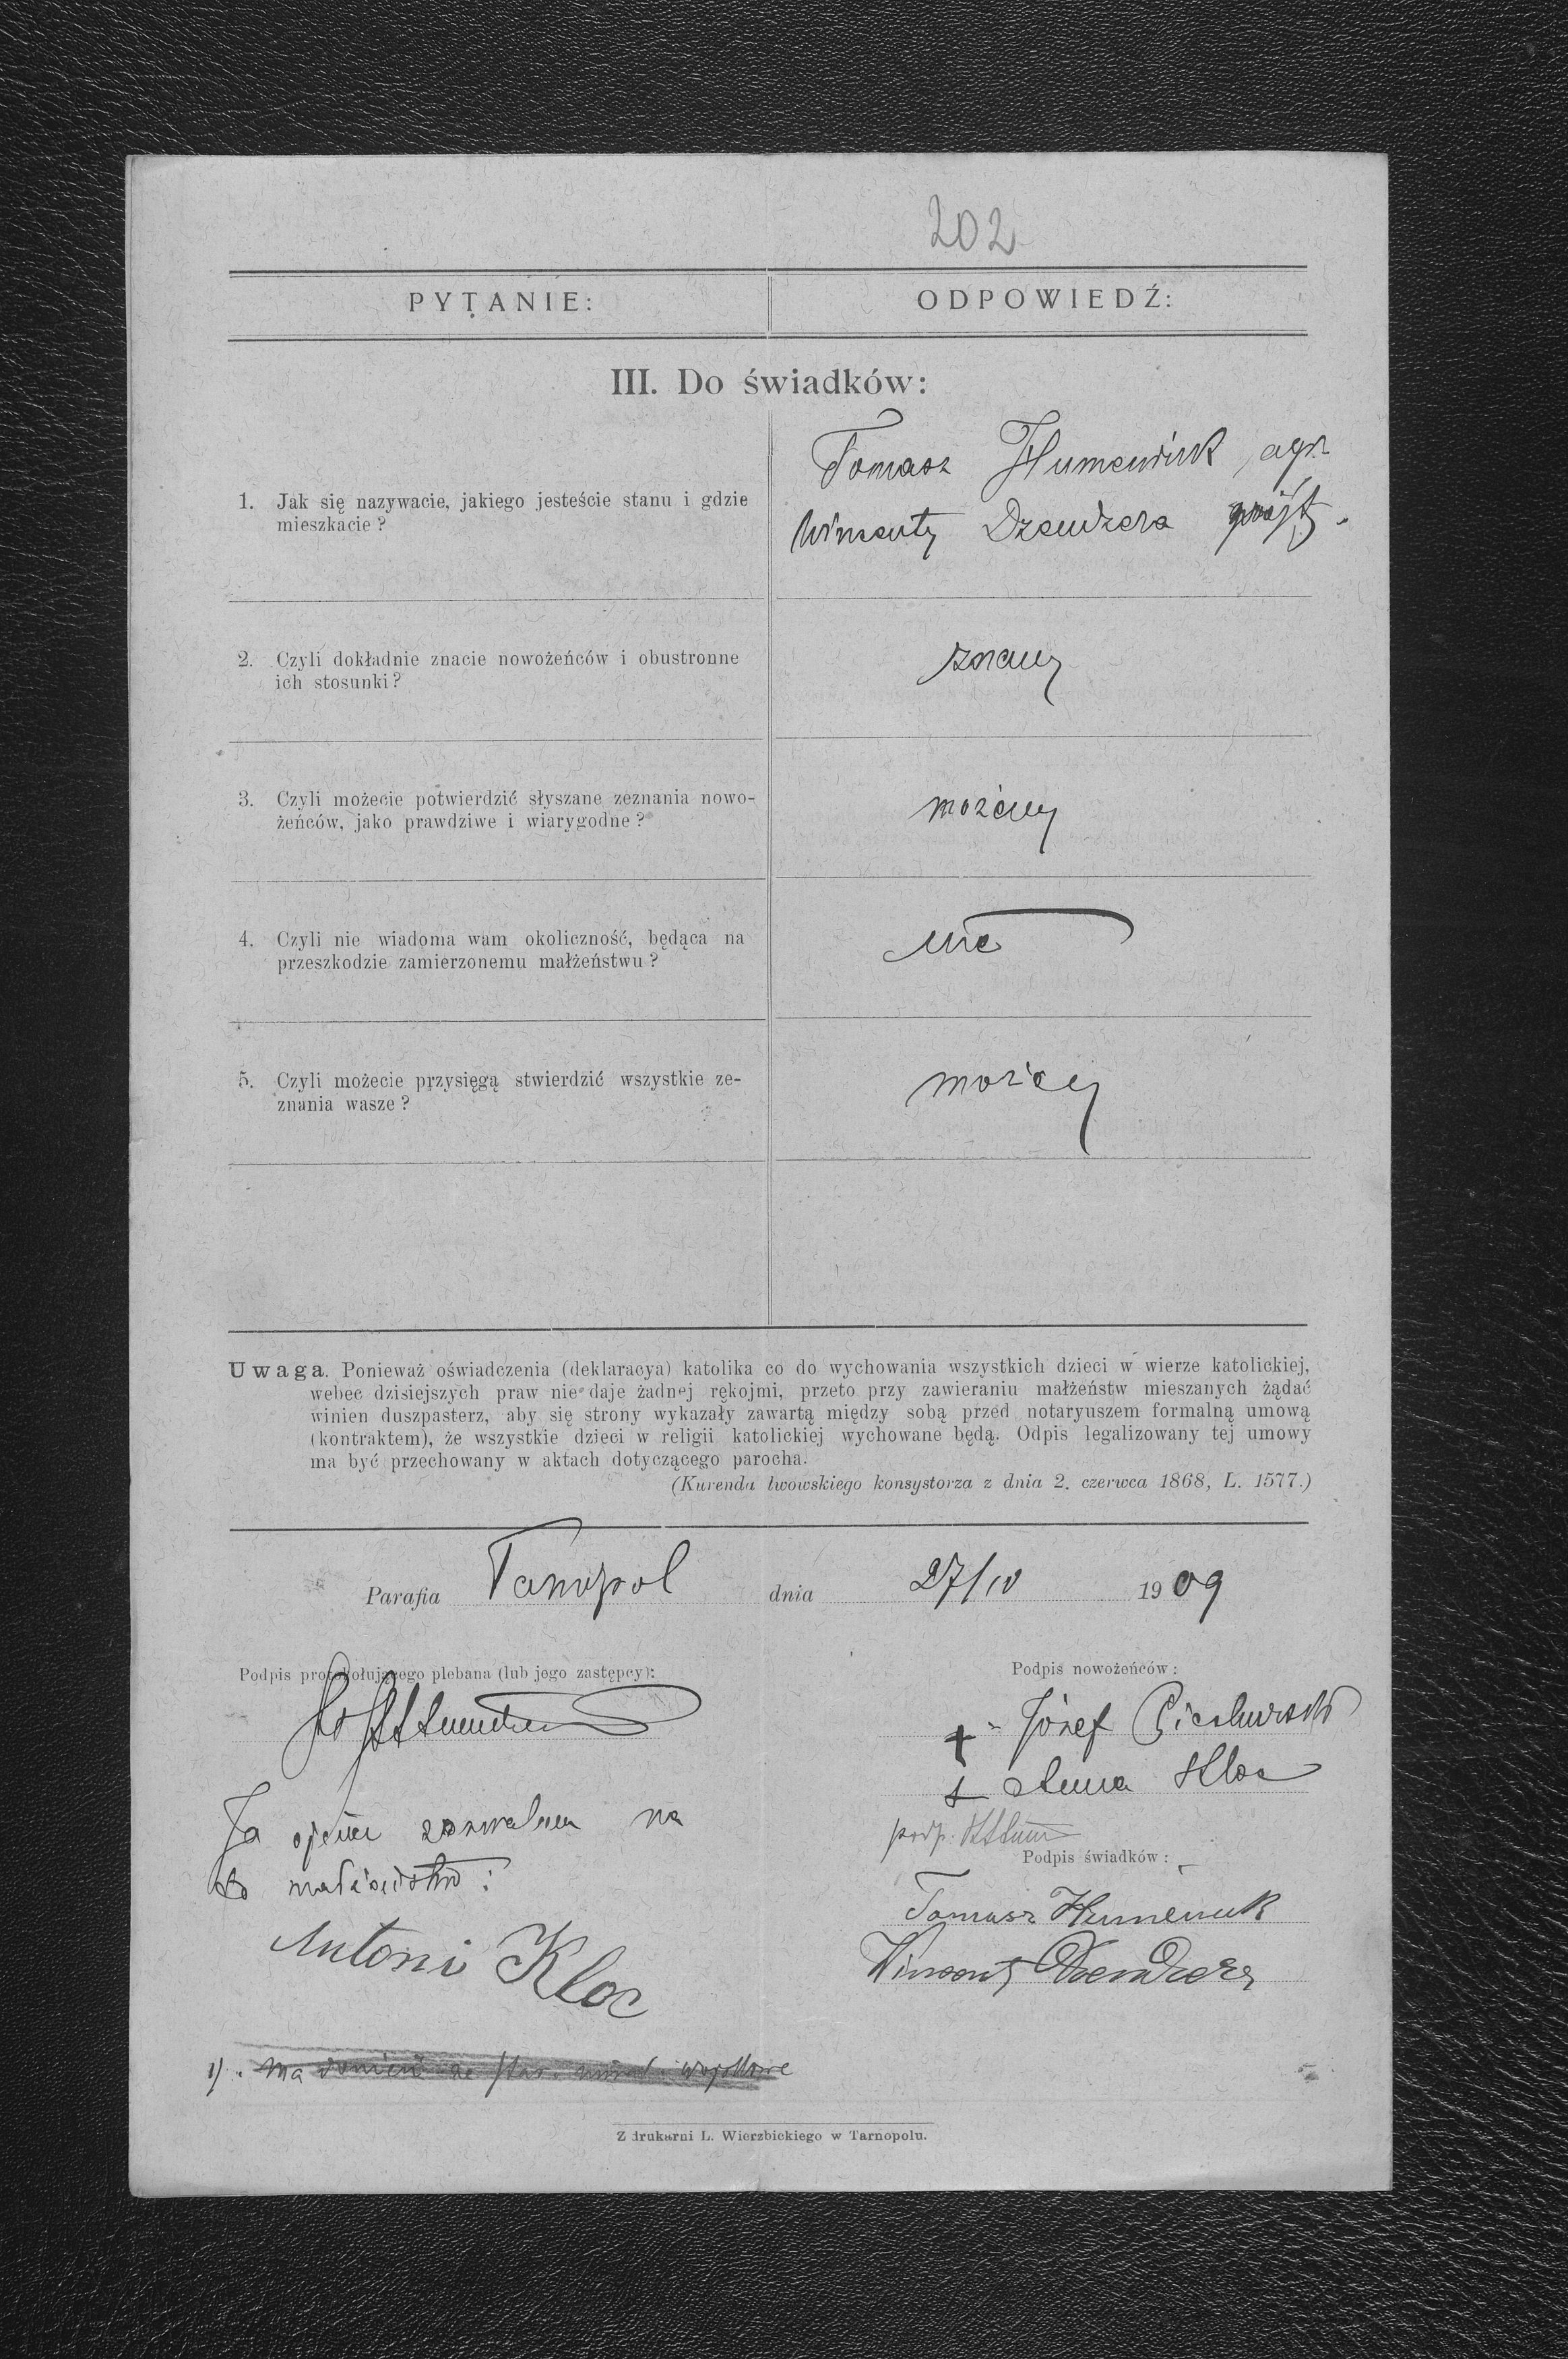 202
PYTANIE: ODPOWIEDŹ:
III. Do świadków:
1. Jak się nazywacie, jakiego jesteście stanu i gdzie
mieszkacie?
Tomasz Humeniuk, agr.
Wincenty Dzendzera
2. Czyli dokładnie znacie nowożeńców i obustronne
ich stosunki?
znamy
3. Czyli możecie potwierdzić słyszane zeznania nowo-
żeńców, jako prawdziwe i wiarygodne?
możemy
4. Czyli nie wiadoma wam okoliczność, będąca na
przeszkodzie zamierzonemu małżeństwu?
nie
5. Czyli możecie przysięgą stwierdzić wszystkie ze-
znania wasze?
możemy
Uwaga. Ponieważ oświadczenia (deklaracya) katolika co do wychowania wszystkich dzieci w wierze katolickiej,
webec dzisiejszych praw nie daje żadnej rękojmi, przeto przy zawieraniu małżeństw mieszanych żądać
winien duszpasterz, aby się strony wykazały zawartą między sobą przed notaryuszem formalną umową
(kontraktem), że wszystkie dzieci w religii katolickiej wychowane będą. Odpis legalizowany tej umowy
ma być przechowany w aktach dotyczącego parocha.
(Kurenda lwowskiego konsystorza z dnia 2. czerwca 1868, L. 1577.)
Parafia Tarnopol dnia 27/10 1909
Podpis protokołującego plebana (lub jego zastępcy):
Podpis nowożeńców:
+ Józef
+ Anna Kloc
podp.
Ja ojciec zezwalam na
to małżeństwo:
Antoni Kloc
Podpis świadków:
Tomasz Humeniuk
Wincenty Dzendzera
1). ma
Z drukarni L. Wierzbickiego w Tarnopolu.